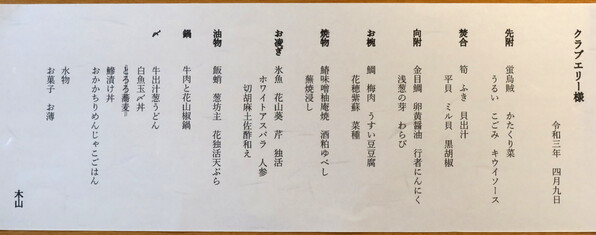 クラブエリー様
令和三年 四月九日
先附 蛍烏賊 かたくり菜
うるい こごみ キウイソース
焚合 筍 ふき 貝出汁
平貝 ミル貝 黒胡椒
向附 金目鯛 卵黄醤油 行者にんにく
浅葱の芽 わらび
お椀 鯛 梅肉 うすい豆豆腐
花穂紫蘇 菜種
焼物 鰆味噌柚庵焼 酒粕ゆべし
蕪焼浸し
お凌ぎ 氷魚 花山葵 芹 独活
ホワイトアスパラ 人参
切胡麻土佐酢和え
油物 飯蛸 葱坊主 花独活天ぷら
鍋 牛肉と花山椒鍋
〆 牛出汁葱うどん
白魚玉〆丼
とろろ蕎麦
鰺漬け丼
おかかちりめんじゃこごはん
水物
お菓子 お薄
木山